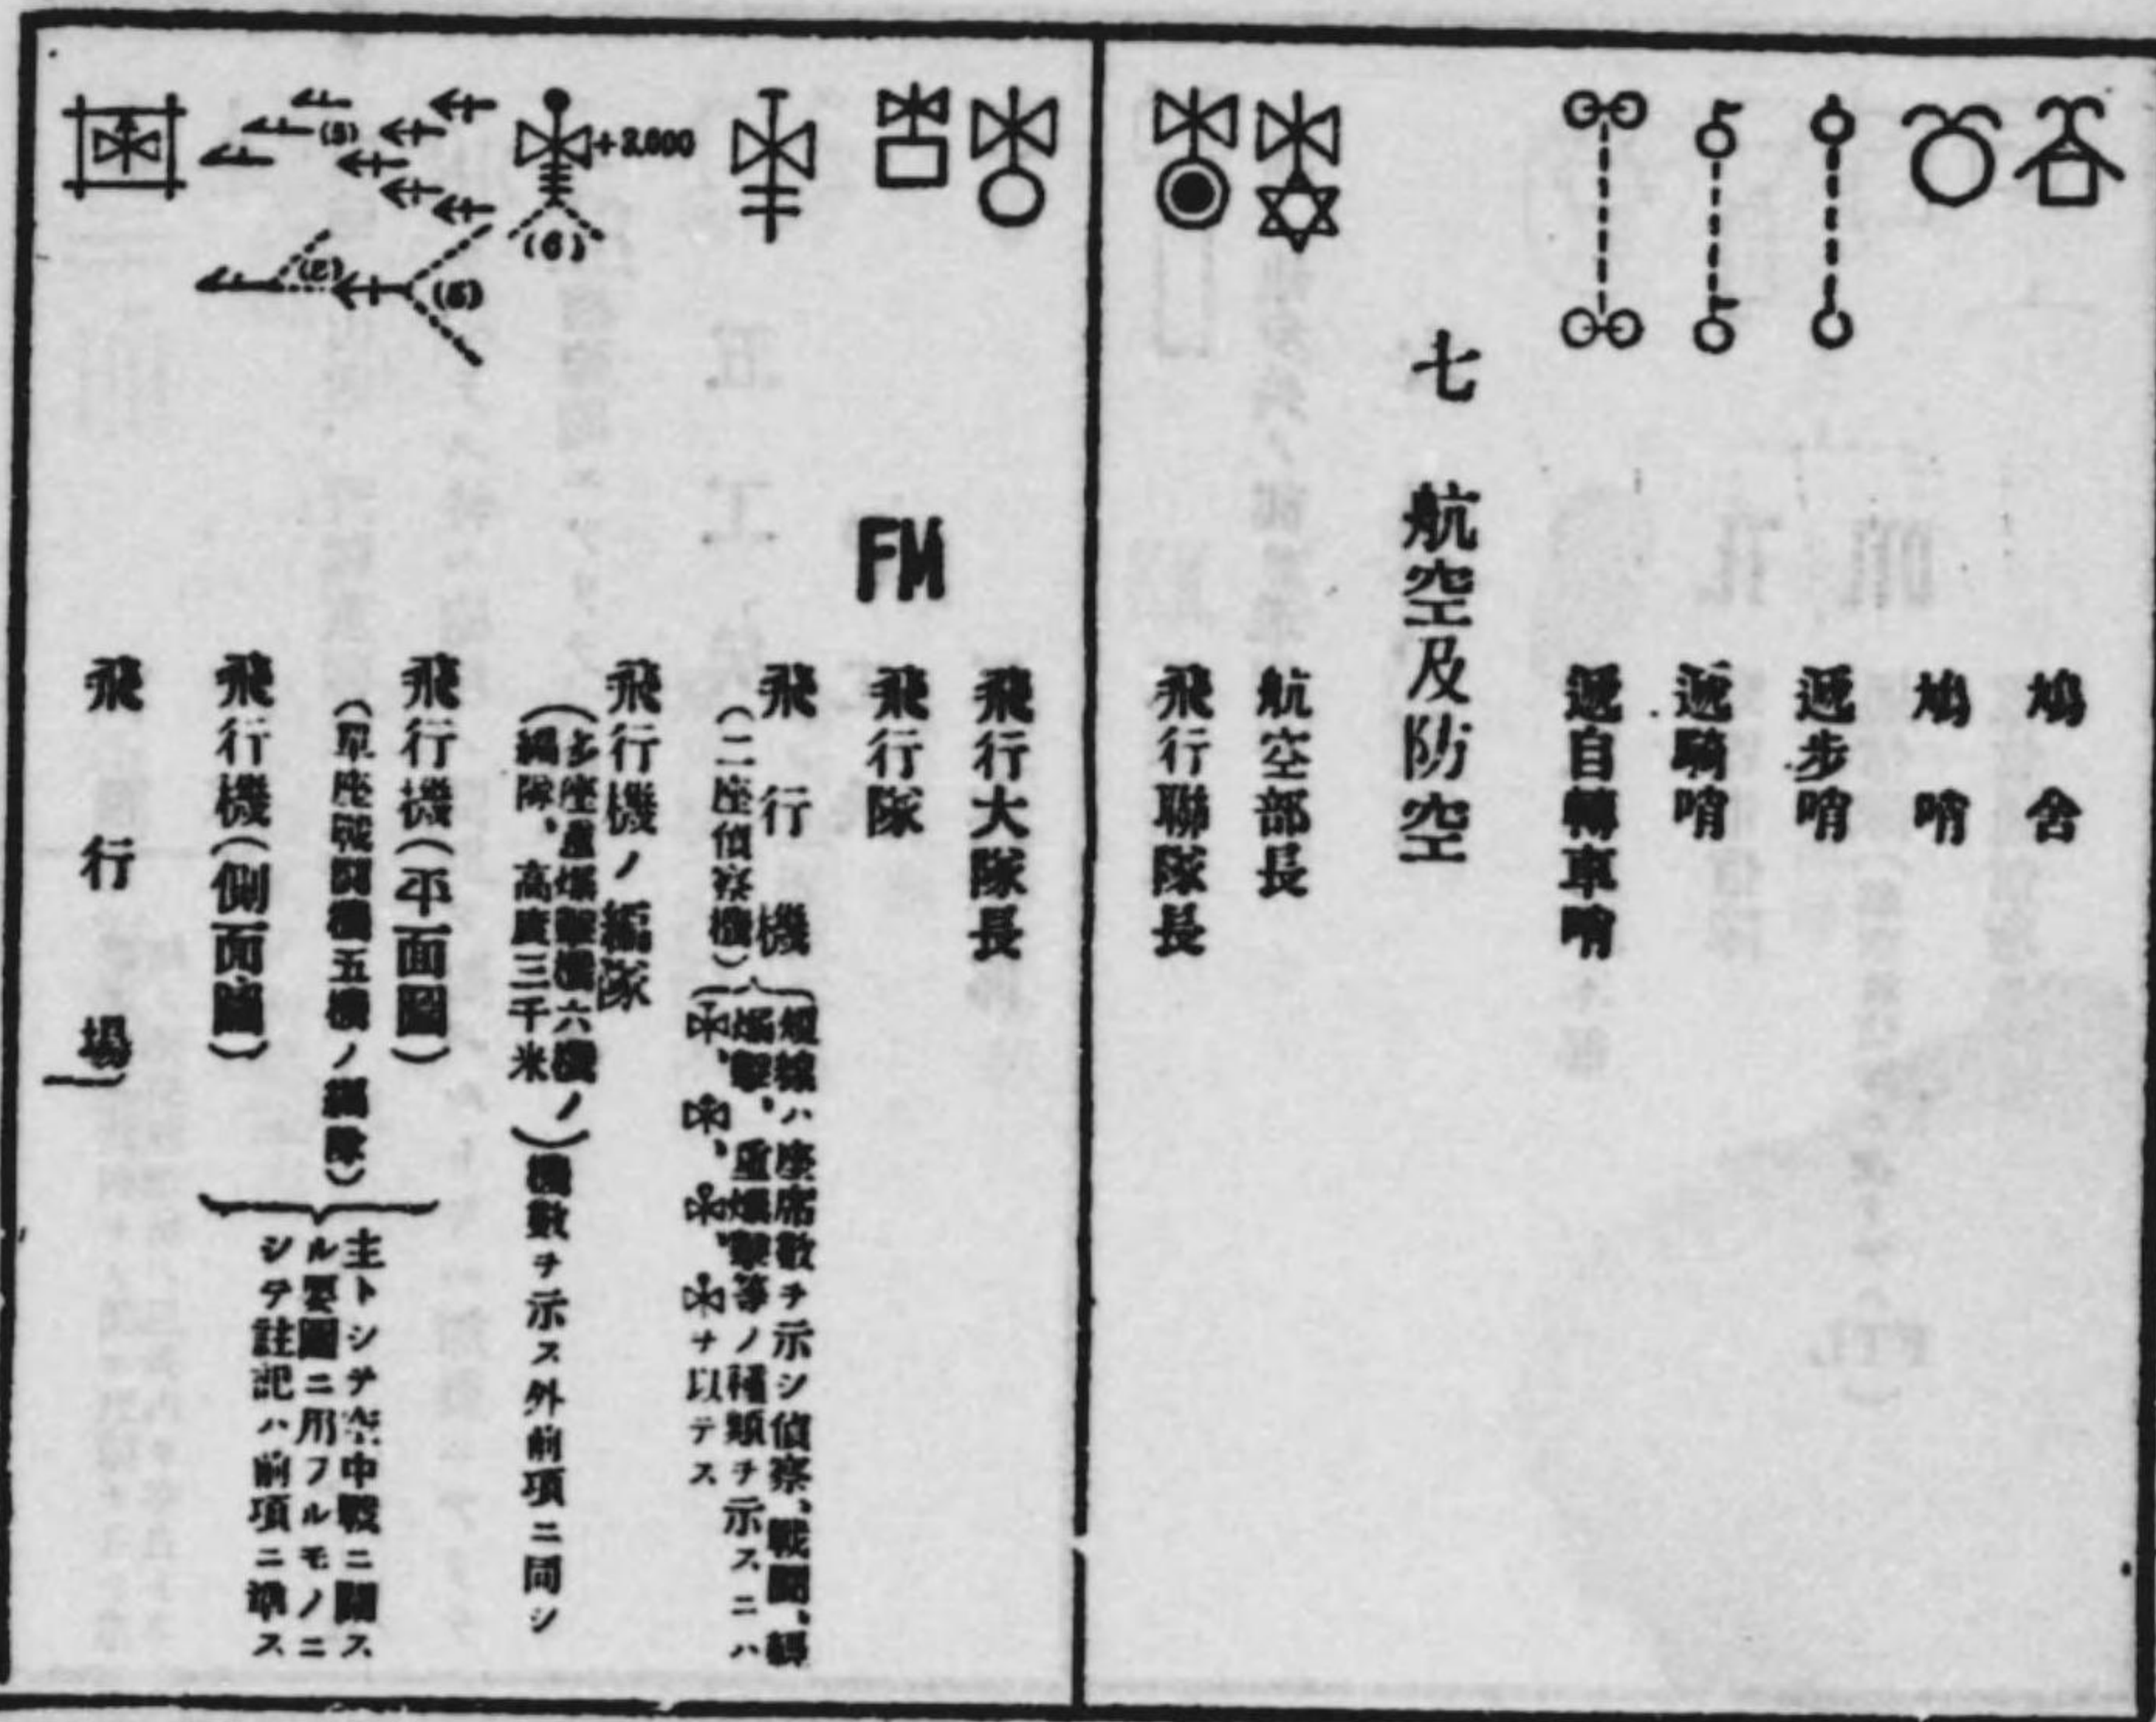 鳩舍
鳩哨
遞步哨
遞騎哨
遞自轉車哨
七 航空及防空
航空部長
飛行聯隊長
飛行大隊長
FM 飛行隊
飛行機
(二座偵察機)
短線ハ座席數ヲ示シ偵察、戰鬪、輕
爆擊、重爆擊等ノ種類ヲ示スニハ
、、、ヲ以テス
+3.000
(6)
飛行機ノ編隊
(多座重爆擊機六機ノ
編隊、高度三千米)
機數ヲ示ス外前項ニ同シ
(5)
(5)
(5)
飛行機(平面圖)
(單座戰鬪機五機ノ編隊)
飛行機(側面圖)
主トシテ空中戰ニ關ス
ル要圖ニ用フルモノニ
シテ註記ハ前項ニ準ス
飛行場